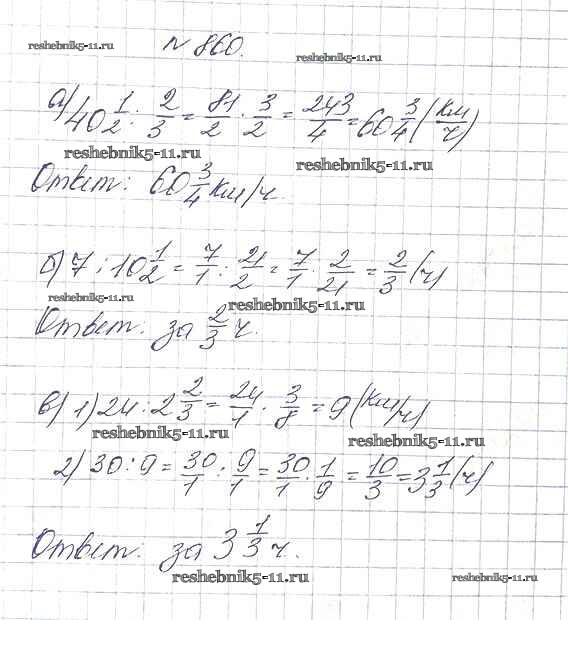 reshebnik5-11.ru
№ 860.
reshebnik5-11.ru
а) 40 1/2 : 2/3 = 81/2 · 3/2 = 243/4 = 60 3/4 (км/ч)
reshebnik5-11.ru
reshebnik5-11.ru
Ответ: 60 3/4 км/ч.
б) 7 : 10 1/2 = 7/1 : 21/2 = 7/1 · 2/21 = 2/3 (ч)
reshebnik5-11.ru
reshebnik5-11.ru
Ответ: за 2/3 ч.
в) 1) 24 : 2 2/3 = 24/1 · 3/8 = 9 (км/ч)
reshebnik5-11.ru
reshebnik5-11.ru
2) 30 : 9 = 30/1 : 9/1 = 30/1 · 1/9 = 10/3 = 3 1/3 (ч)
Ответ: за 3 1/3 ч.
reshebnik5-11.ru
reshebnik5-11.ru